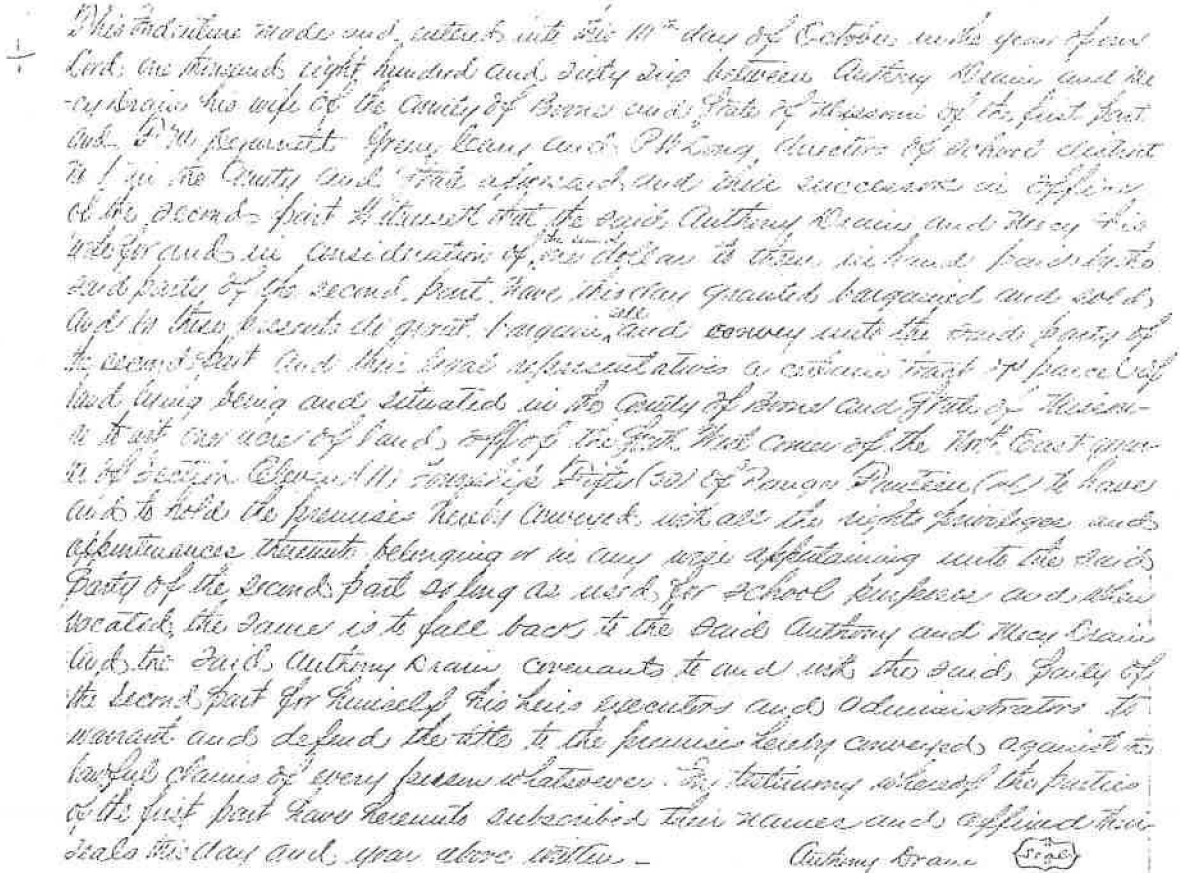 This Indenture made and entered into this 11th day of October in the year of our
Lord one thousand eight hundred and sixty six between Anthony Drain and Me
-cy Drain his wife of the County of Boone and State of Missouri of the first part
and Green and P W Long, directors of school district
No 1 in the County and State aforesaid and their successors in office
of the second part Witnesseth that the said Anthony Drain and Mecy his
wife for and in consideration of the sum of one dollar to them in hand paid by the
said party of the second part have this day granted bargained and sold
and by these presents do grant bargain, sell and convey unto the said party of
the second part and their legal representatives a certain tract or parcel of
land lying being and situated in the County of Boone and State of Missou-
ri to wit one acre of land off of the West corner of the North East quar-
ter of Section Eleven (11) Township Fifty (50) of Range to have
and to hold the premises hereby conveyed with all the rights privileges and
appurtenances thereunto belonging or in any wise appertaining unto the said
Party of the second part so long as used for school purposes and when
vacated the same is to fall back to the said Anthony and Mecy Drain
And the said Anthony Drain covenants to and with the said party of
the second part for himself his heirs executors and administrators to
warrant and defend the title to the premises hereby conveyed against the
lawful claims of every person whatsoever. In testimony whereof the parties
of the first part have hereunto subscribed their names and affixed their
seals this day and year above written - Anthony Drain Seal